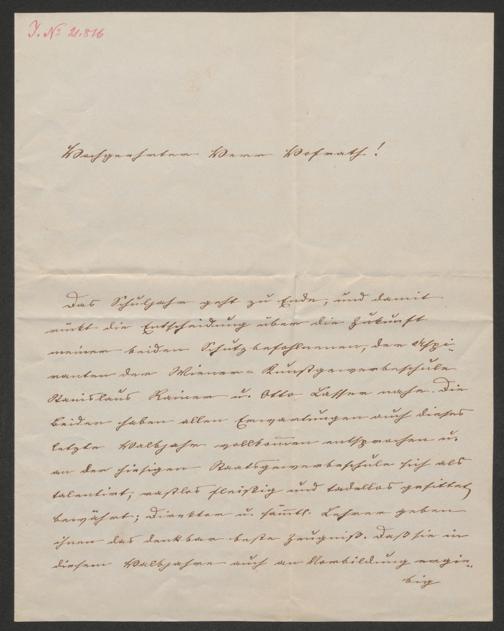 J. № 21.816
Hochgeehrter Herr Hofrath!
Das Schuljahr geht zu Ende, und damit
rückt die Entscheidung über die Zukunft
meiner beiden Schutzbefohlenen, der Aspi-
ranten der Wiener-Kunstgewerbeschule
Stanislaus Ramer u. Otto Lasser nahe. Die
beiden haben allen Erwartungen auch dieses
letzte Halbjahr vollkommen entsprochen u.
an der hiesigen Staatsgewerbeschule sich als
talentirt, rastlos fleißig und tadellos gesittet
bewährt; Direktor u. sämtl. Lehrer geben
ihnen das denkbar beste Zeugniß. Daß sie in
diesem Halbjahre auch an Vorbildung ergie-
big